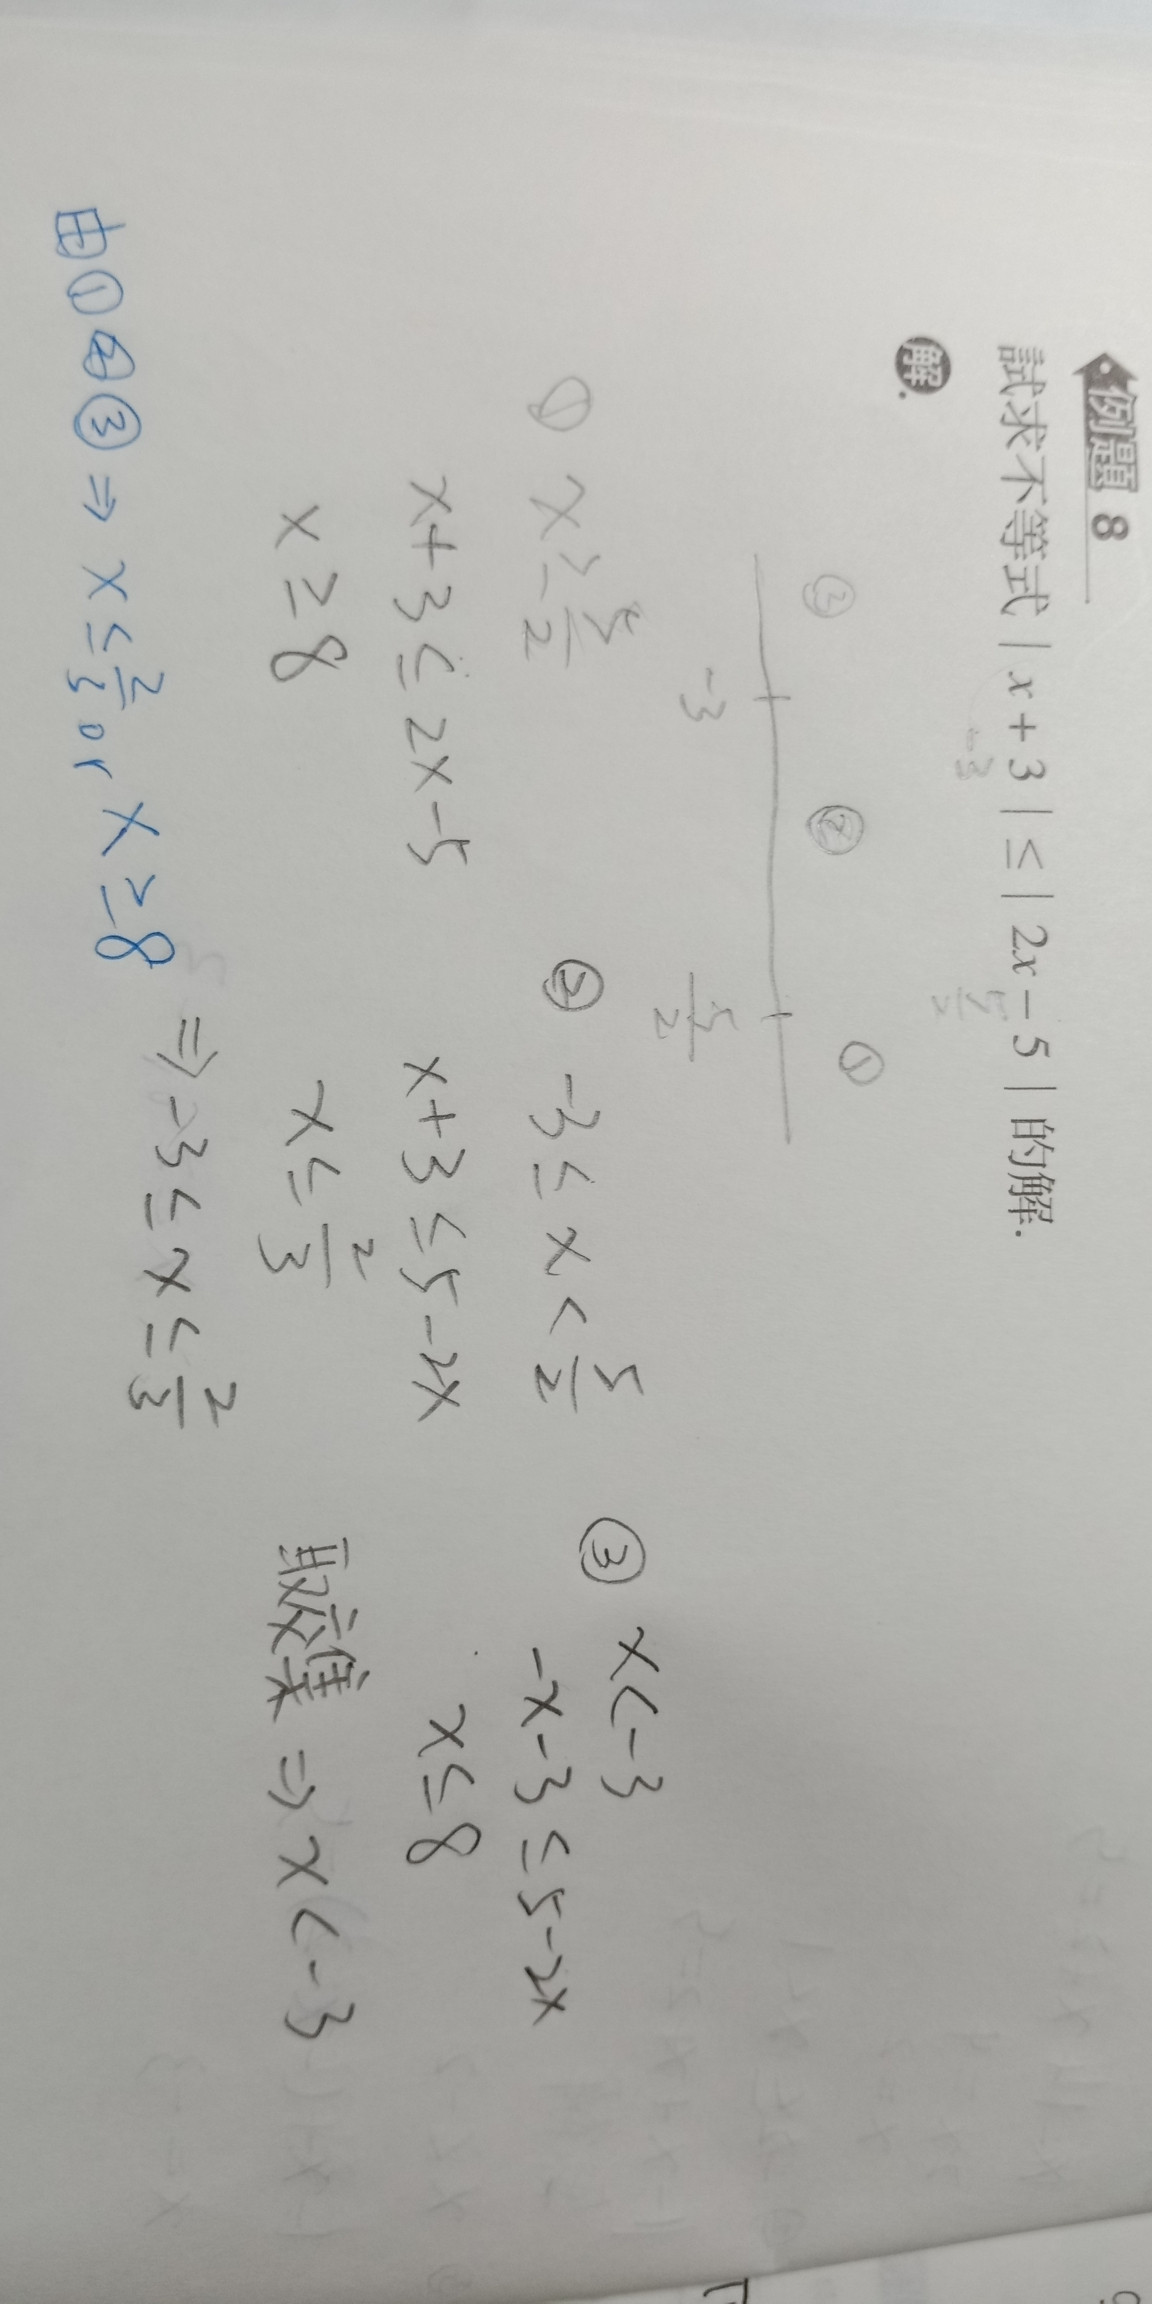 例題 8
試求不等式 | x + 3 | ≤ | 2x − 5 | 的解.
-3 5/2
解.
③ ② ①
-3 5/2
① x ≥ 5/2
x+3 ≤ 2x-5
x ≥ 8
② -3 ≤ x < 5/2
x+3 ≤ 5-2x
x ≤ 2/3
⇒ -3 ≤ x ≤ 2/3
③ x < -3
-x-3 ≤ 5-2x
x ≤ 8
取交集 ⇒ x < -3
由①②③ ⇒ x ≤ 2/3 or x ≥ 8